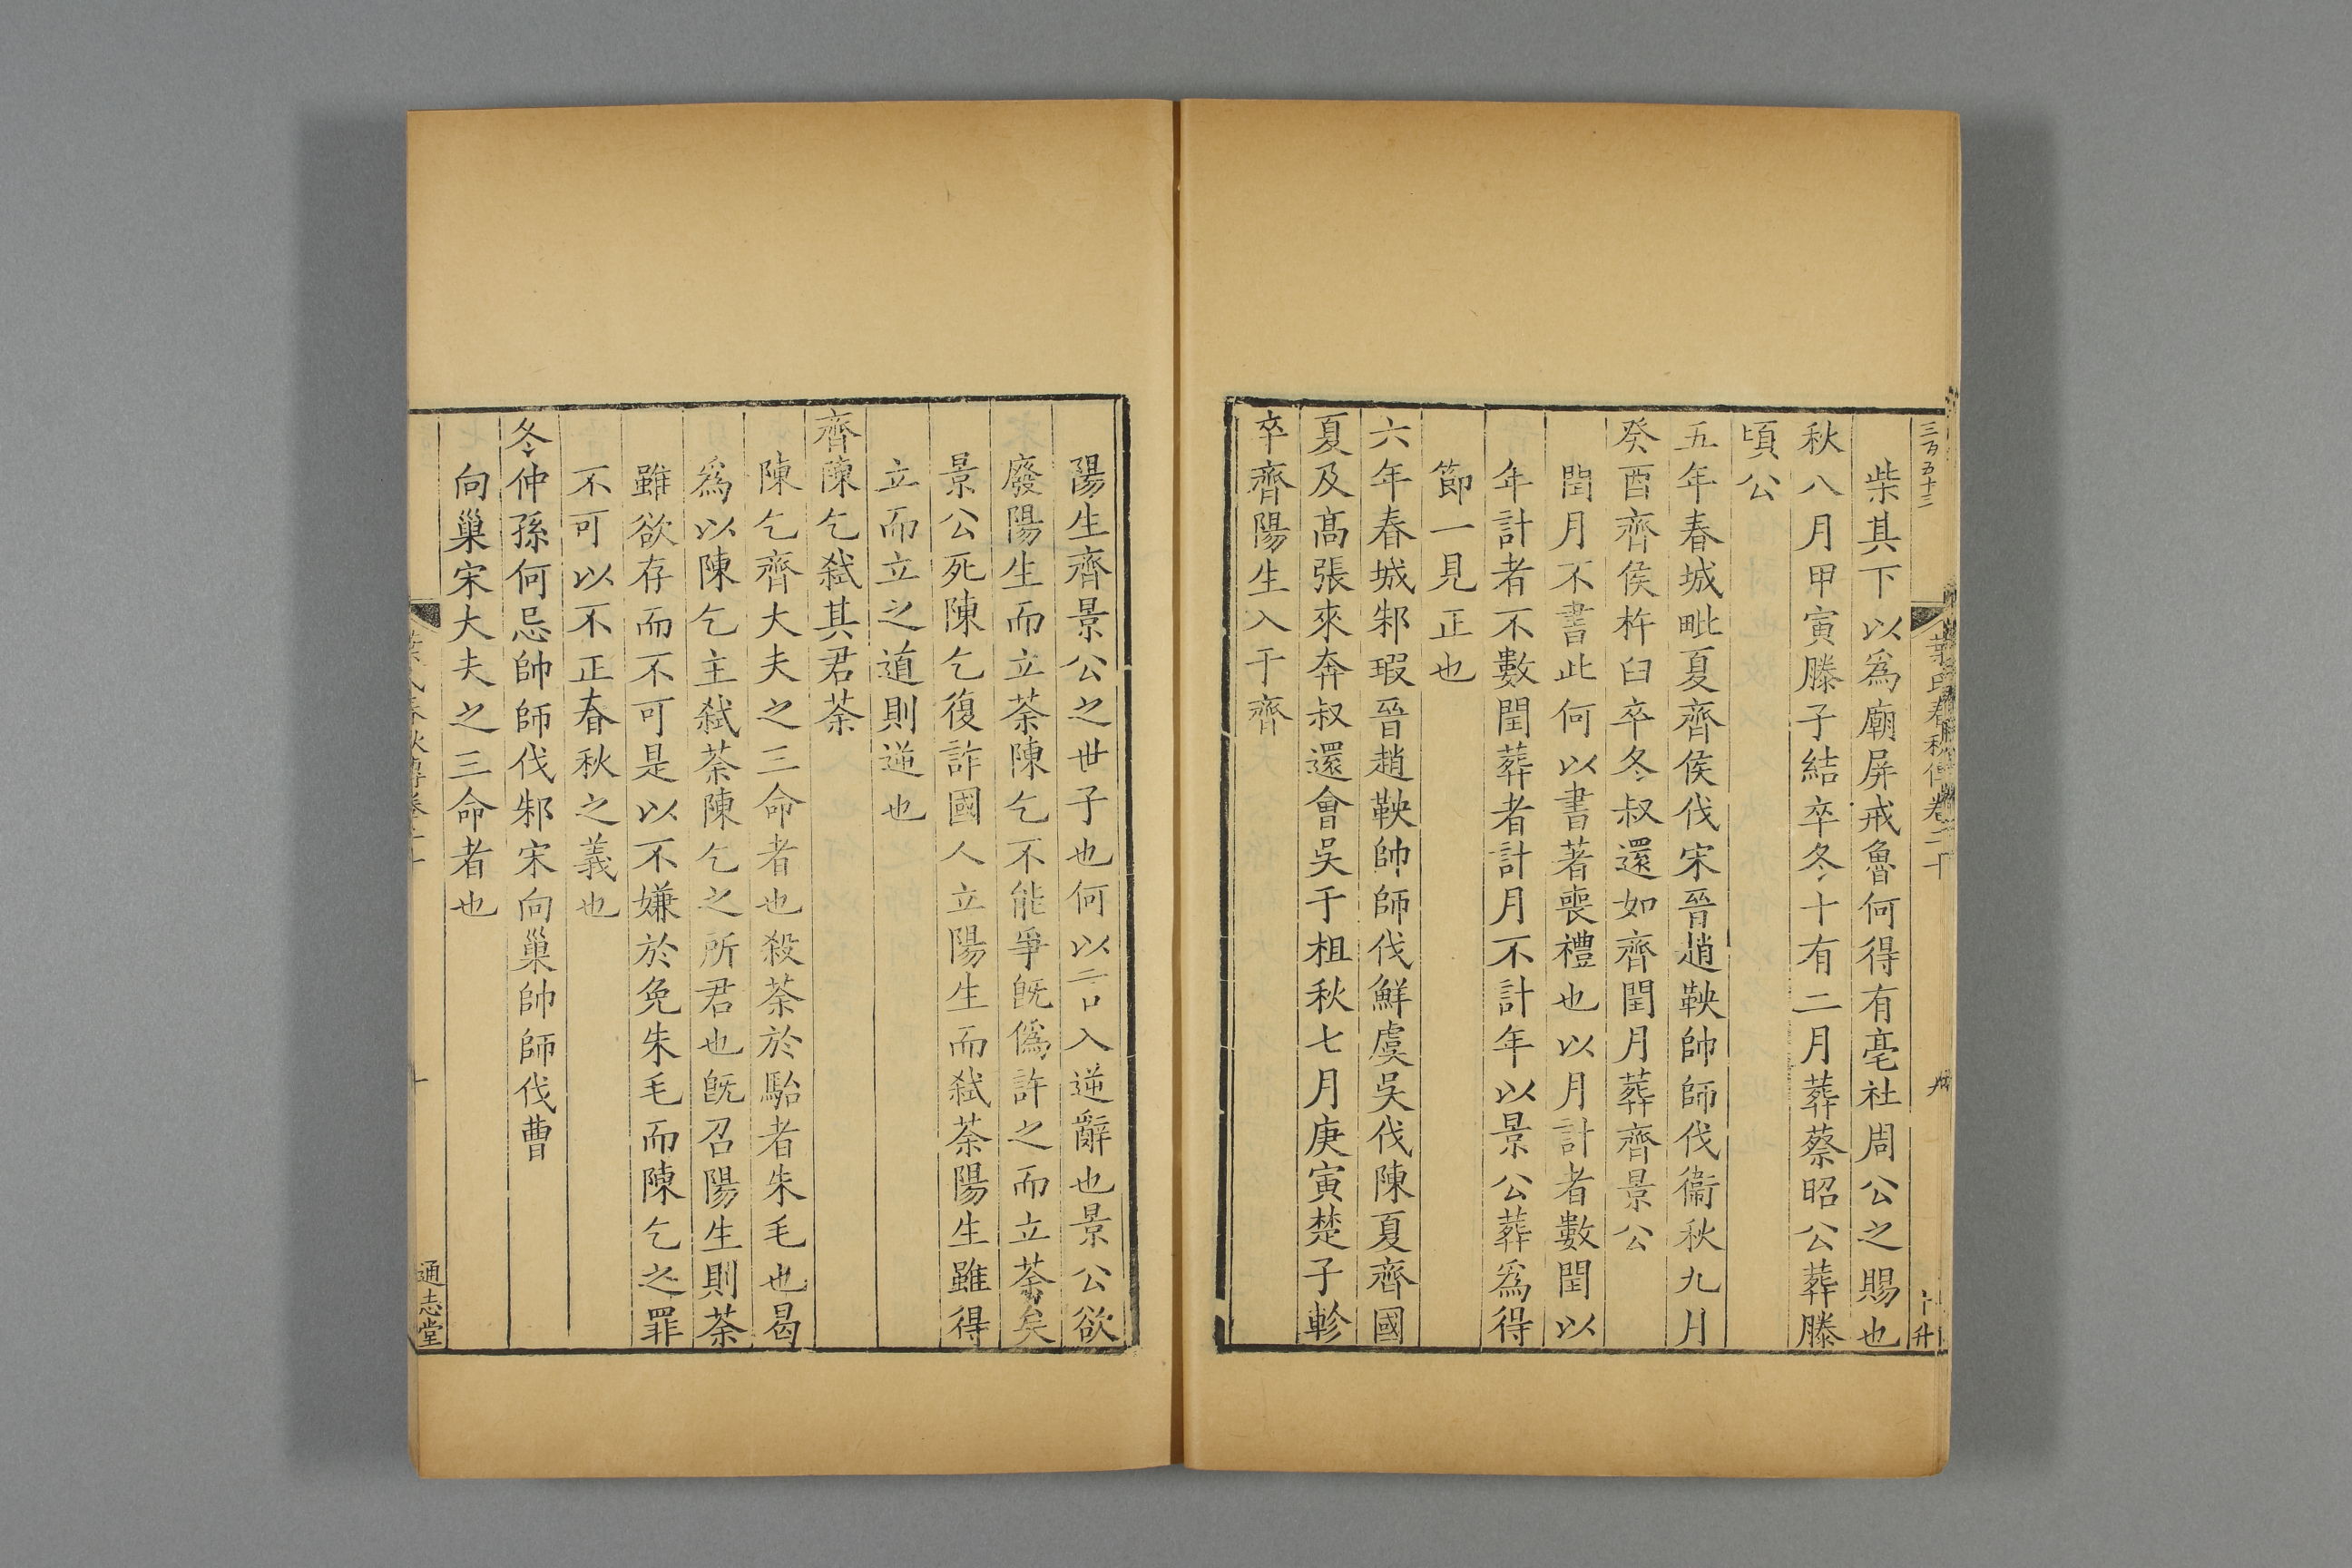 三百五十三
葉氏春秋傳卷二十
柴其下以爲廟屏戒魯何得有亳社周公之賜也
秋八月甲寅滕子結卒冬十有二月葬蔡昭公葬滕
頃公
五年春城毗夏齊侯伐宋晉趙鞅帥師伐衞秋九月
癸酉齊侯杵臼卒冬叔還如齊閏月葬齊景公
閏月不書此何以書著喪禮也以月計者數閏以
年計者不數閏葬者計月不計年以景公葬爲得
節一見正也
六年春城邾瑕晉趙鞅帥師伐鮮虞吳伐陳夏齊國
夏及高張來奔叔還會吳于柤秋七月庚寅楚子軫
卒齊陽生入于齊
陽生齊景公之世子也何以言入逆辭也景公欲
廢陽生而立荼陳乞不能爭旣僞許之而立荼矣
景公死陳乞復詐國人立陽生而弒荼陽生雖得
立而立之道則逆也
齊陳乞弒其君荼
陳乞齊大夫之三命者也殺荼於駘者朱毛也曷
爲以陳乞主弒荼陳乞之所君也旣召陽生則荼
雖欲存而不可是以不嫌於免朱毛而陳乞之罪
不可以不正春秋之義也
冬仲孫何忌帥師伐邾宋向巢帥師伐曹
向巢宋大夫之三命者也
葉氏春秋傳卷二十
十
通志堂